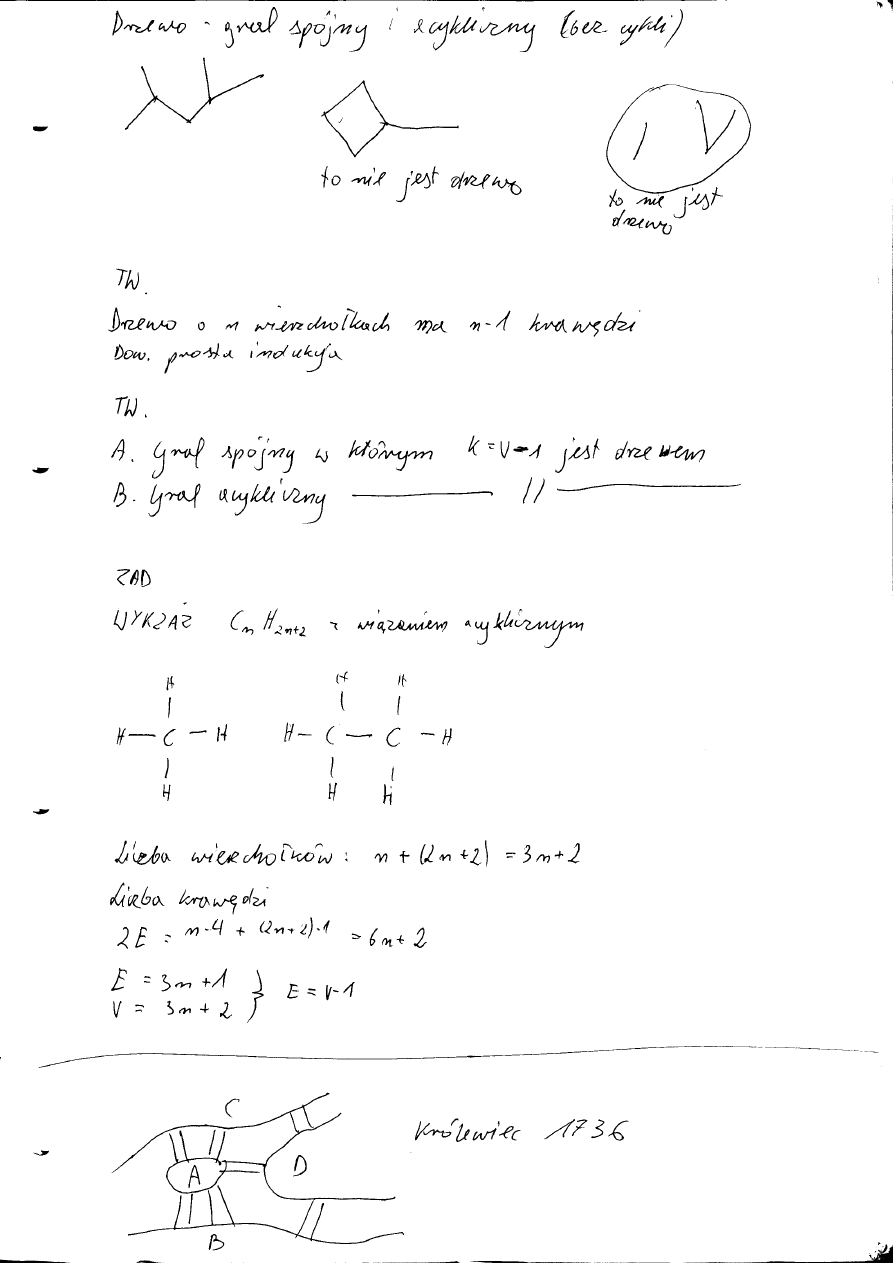 Drzewo - graf spójny i acykliczny (bez cykli)
to nie jest drzewo
to nie jest
drzewo
TW.
Drzewo o n wierzchołkach ma n-1 krawędzi
Dow. prosta indukcja
TW.
A. Graf spójny w którym K=V-1 jest drzewem
B. Graf acykliczny ——— // ———
ZAD
WYKZAŻ CnH2n+2 z wiązaniem acyklicznym
H H H
H — C — H H — C — C — H
H H H
Liczba wierzchołków : n + (2n+2) = 3n+2
Liczba krawędzi
2E = n·4 + (2n+2)·1 = 6n+2
E = 3n+1 } E = V-1
V = 3n+2
C
Królewiec 1736
A D
B